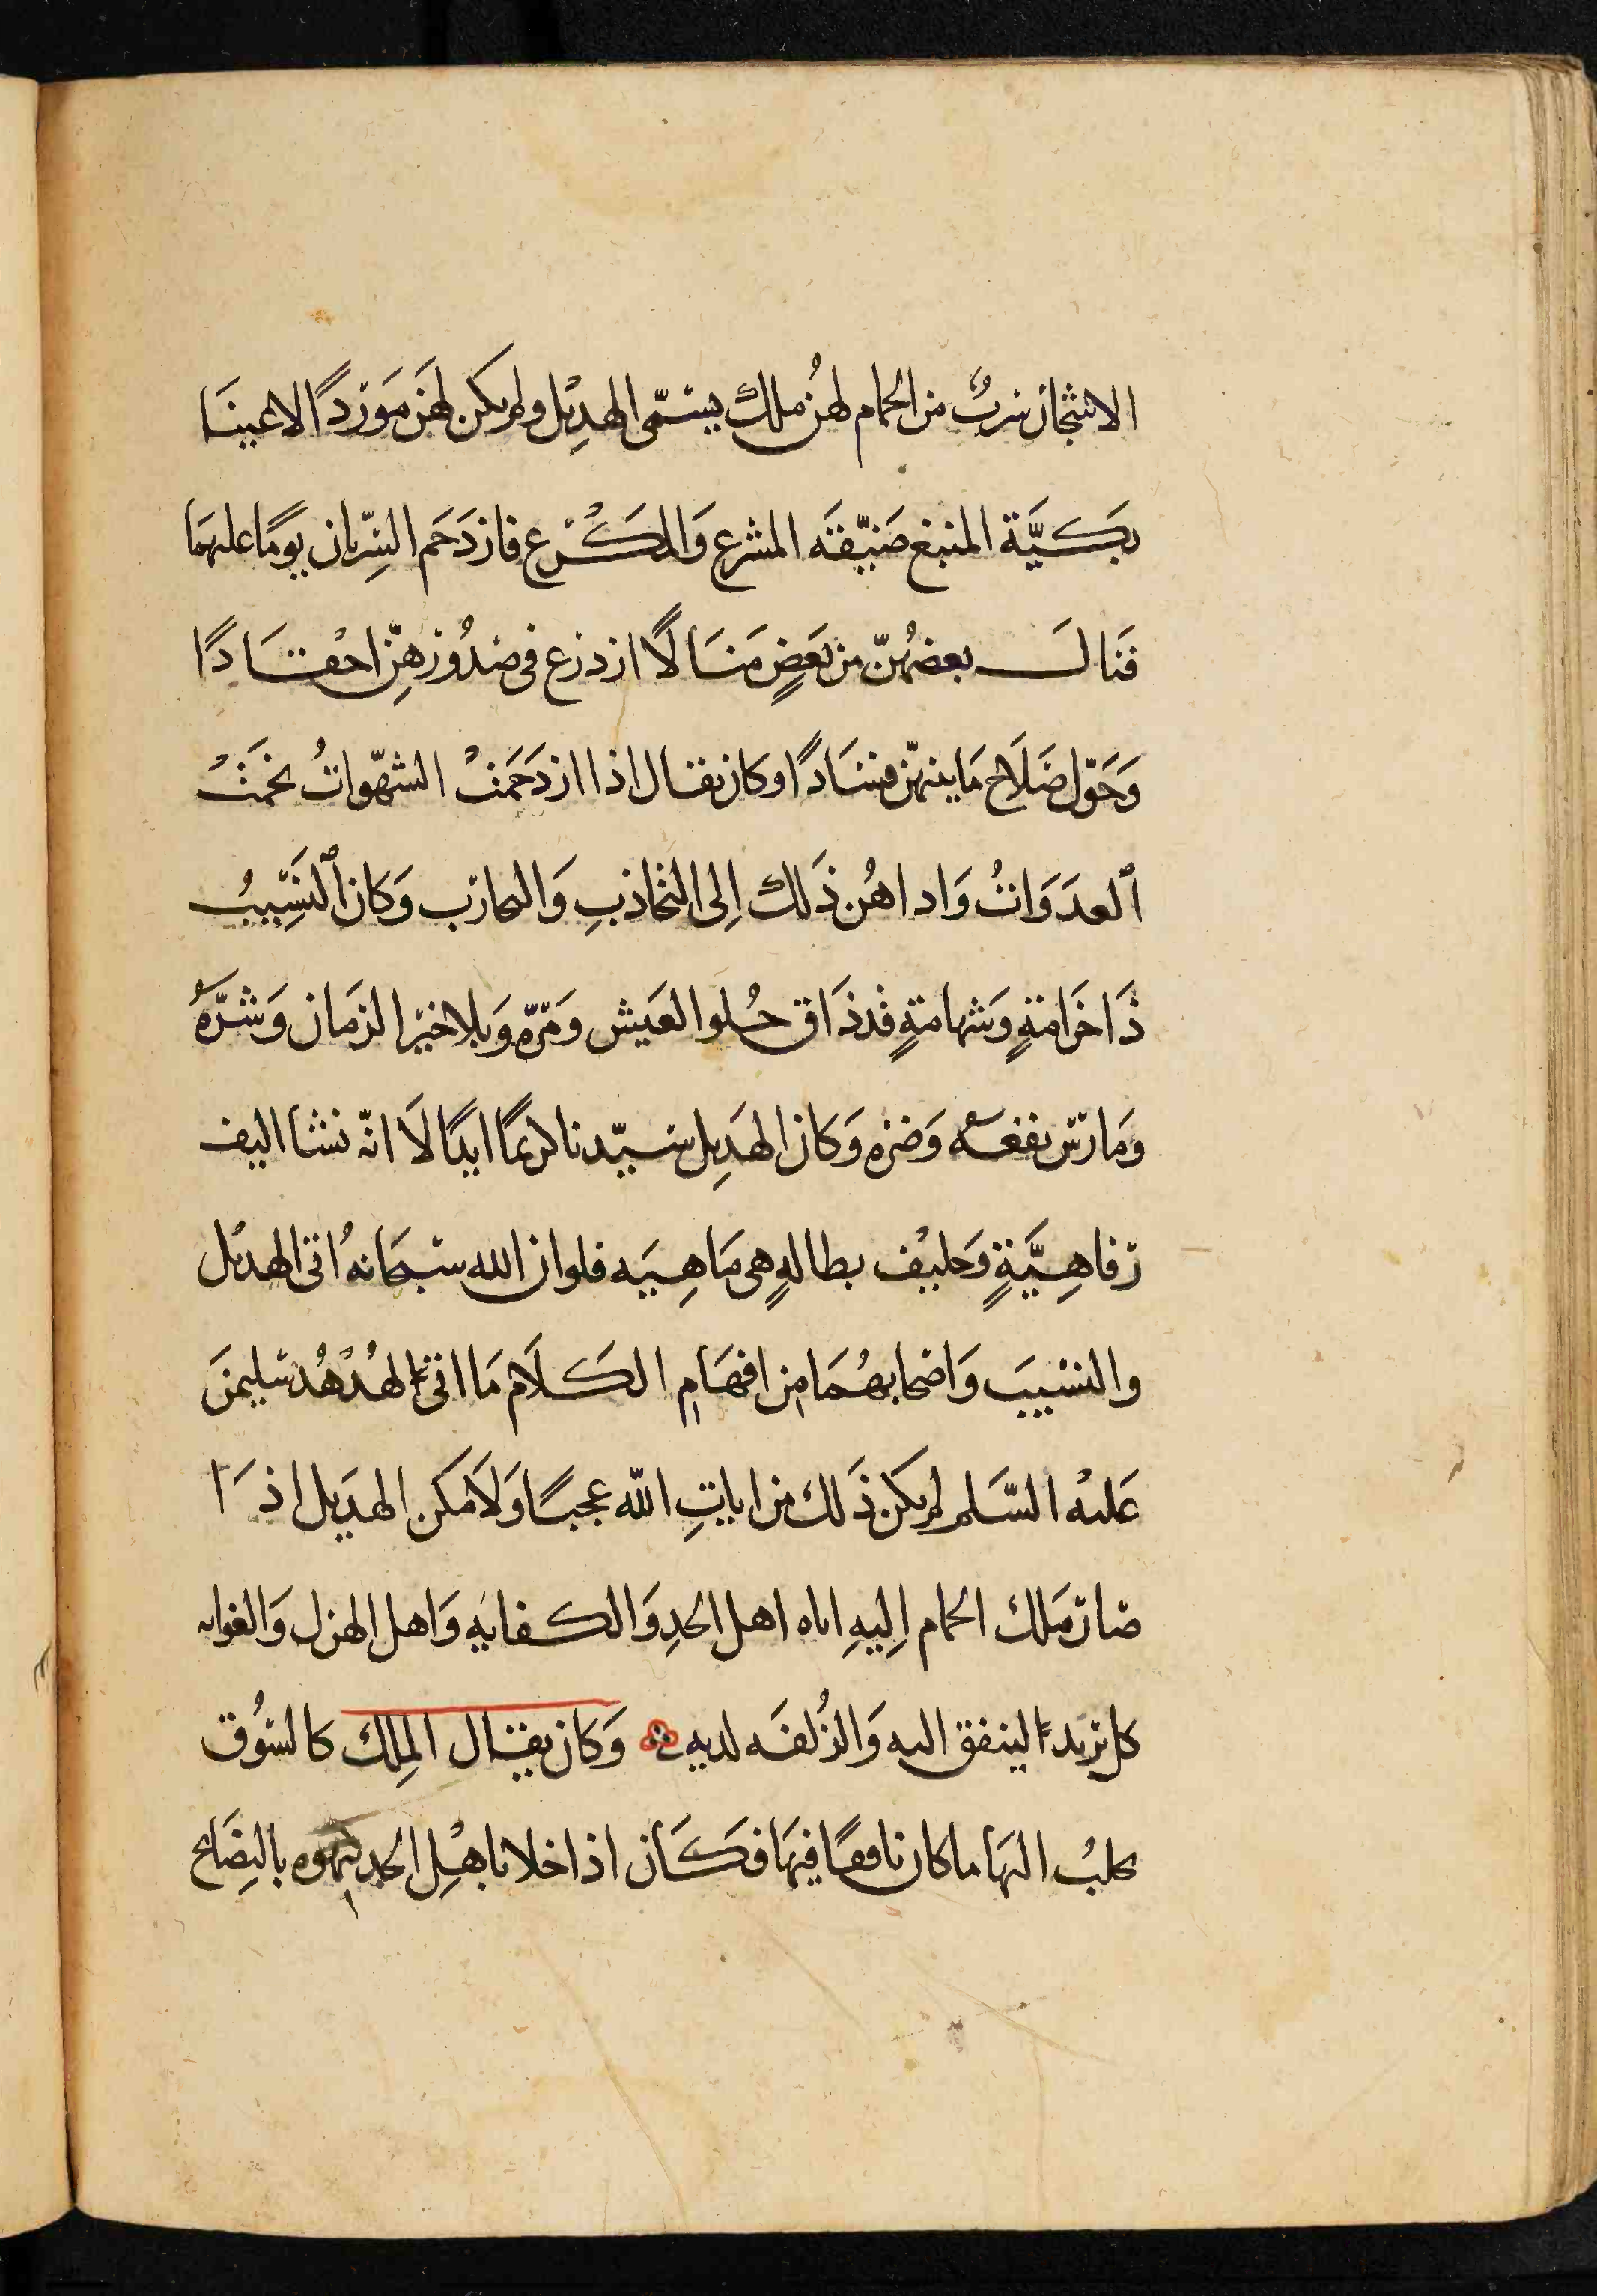 الاشجار سربٌ من الحمام لهنُ ملكٌ يسمّى الهدِيْل ولم يكن لهَن مَوْرِدًا الا عينًا
بَكيَّة المنبع ضَيّقَه المشرع وَالمكْرَع فازدَحَم السِّربان يومًا عليهَا
فَنال بعضهُنّ من بَعَضٍ مَنَالًا ازدرع في صُدُورهِنّ احْقَادًا
وَحَوّل صَلَاح مَا بينهنّ فسَادًا وكان يقال اذا ازدَحَمَتْ الشهّواتُ نجَمَتْ
العدَوَاتُ وَاداهُن ذَلك اِلى التجاذبِ وَالتحارب وَكان النَسِّيبُ
ذَا حَزامةٍ وَشهامةٍ قد ذَاق حُلو العَيش وَمَرّه وَبلا خيْر الزمَان وَشرّهُ
وَمَارسَ نفعَه وَضره وَكان الهَدِيل سيّدنا كريمًا ابدًا لَا انّه نشا اليف
رفاهِيَّةٍ وَحليْف بطالهٍ هى مَا هِيَه فلو ان الله سبحَانهُ اتى الهديْل
والنسّيبَ وَاصحَابهُمَا من افهَامِ الكَلَام مَا اتى الهُدْهُد سليمنَ
عَليْه السَّلم لم يكن ذَلك من اياتِ اللّه عجبًا وَلَامكن الهدَيل اذَا
صَار مَلك الحمام اِليهِ اتاه اهل الجدِ وَالكفايهِ وَاهل الهزل وَالغوايه
كل يُريد التنفق اليه وَالزُلفَه لديهِ وَكان يقال المِلك كالسُوق
يجلبُ اليهَا ما كان نافقًا فيهَا فكَان اذا خلا باهْلِ الجد نبهوه بالنِصَائح